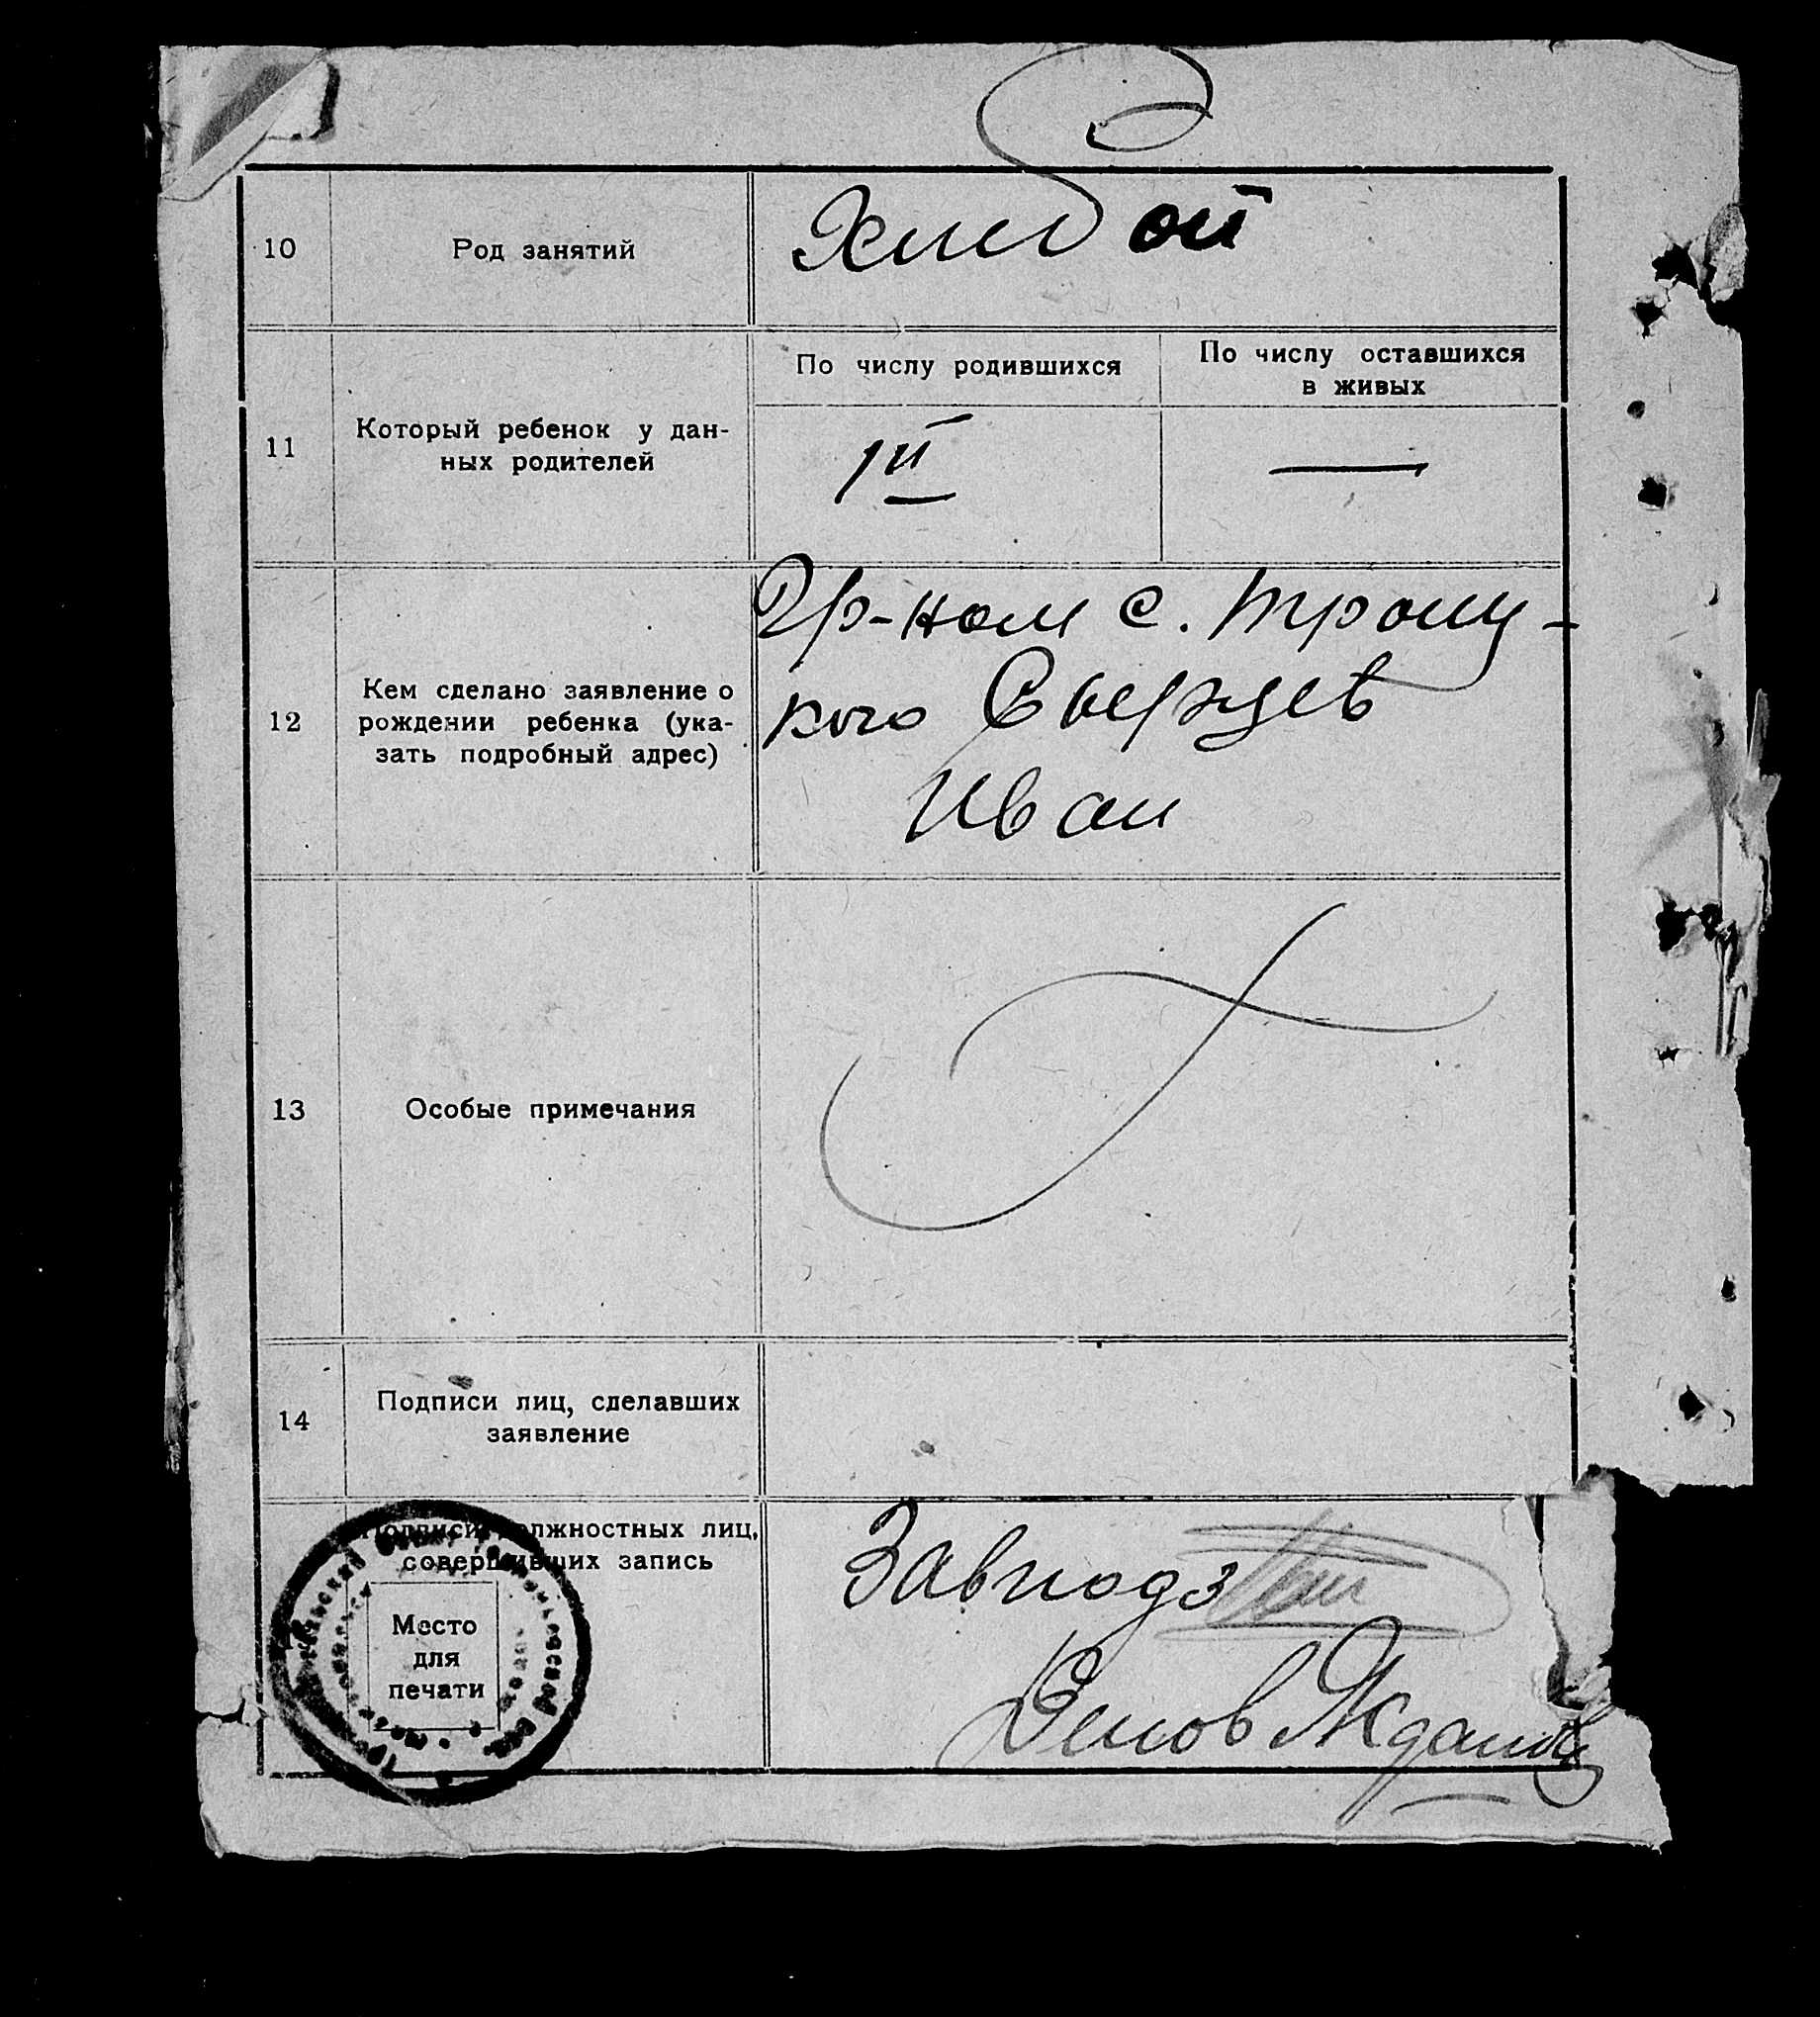 10 Род занятий
11 Который ребенок у дан-
ных родителей
По числу родившихся
По числу оставшихся
в живых
1й
—
12 Кем сделано заявление о
рождении ребенка (ука-
зать подробный адрес)
Гр-ном с. Троиц-
кого
Иван
13 Особые примечания
14 Подписи лиц, сделавших
заявление
Подписи должностных лиц,
совершивших запись
Место
для
печати
Завподз